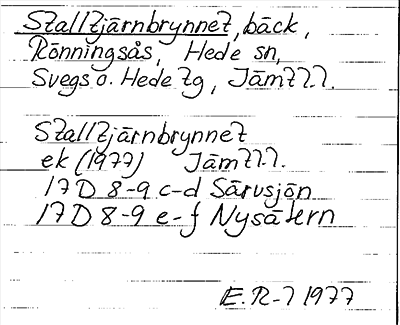 Stalltjärnbrynnet, bäck,
Rönningsås, Hede sn,
Svegs o. Hede tg, Jämtl.
Stalltjärnbrynnet
ek (1977) Jämtl.
17 D 8-9 c-d Särvsjön
17 D 8-9 e-f Nysätern
E. R-l 1977